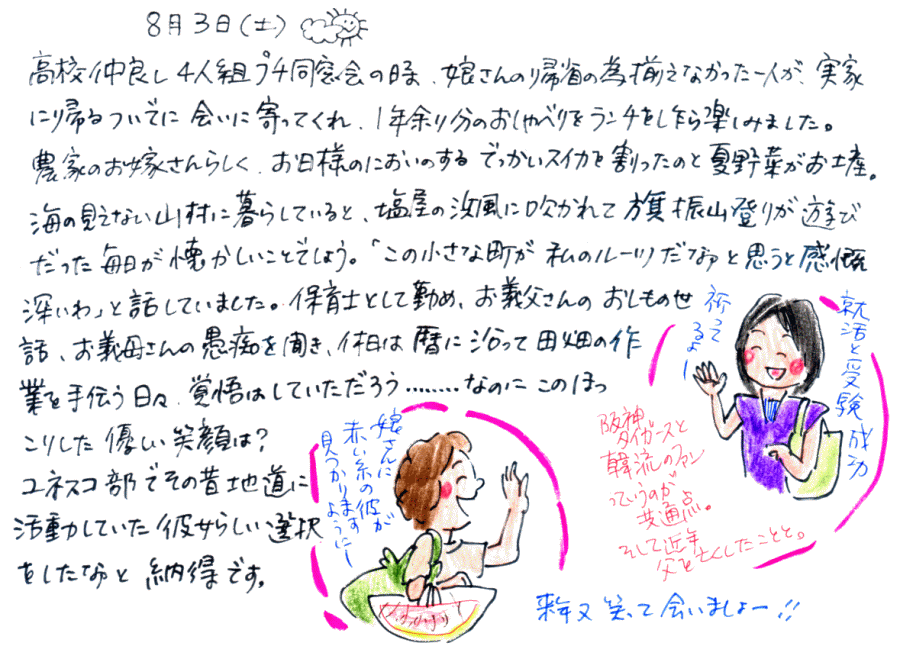 8月3日(土)
高校仲良し4人組プチ同窓会の日。娘さんの帰省の為揃えなかった一人が、実家
に帰るついでに会いに寄ってくれ、1年余り分のおしゃべりをランチをし乍ら楽しみました。
農家のお嫁さんらしく、お日様のにおいのするでっかいスイカを割ったのと夏野菜がお土産。
海の見えない山村に暮らしていると、塩屋の汐風に吹かれて旗振山登りが遊び
だった毎日が懐かしいことでしょう。「この小さな町が私のルーツだなぁと思うと感慨
深いわ」と話していました。保育士として勤め、お義父さんのおしもの世
話、お義母さんの愚痴を聞き、休日は暦に沿って田畑の作
業を手伝う日々、覚悟はしていただろう‥‥‥‥なのにこのほっ
こりした優しい笑顔は?
ユネスコ部でその昔地道に
活動していた彼女らしい選択
をしたなぁと納得です。
娘さんに
赤い糸の彼が
見つかりますように〜
就活と受験成功
祈って
るよー
阪神
タイガースと
韓流のファン
っていうのが
共通点。
そして近年
父を亡くしたことと。
来年又笑って会いましょー!!